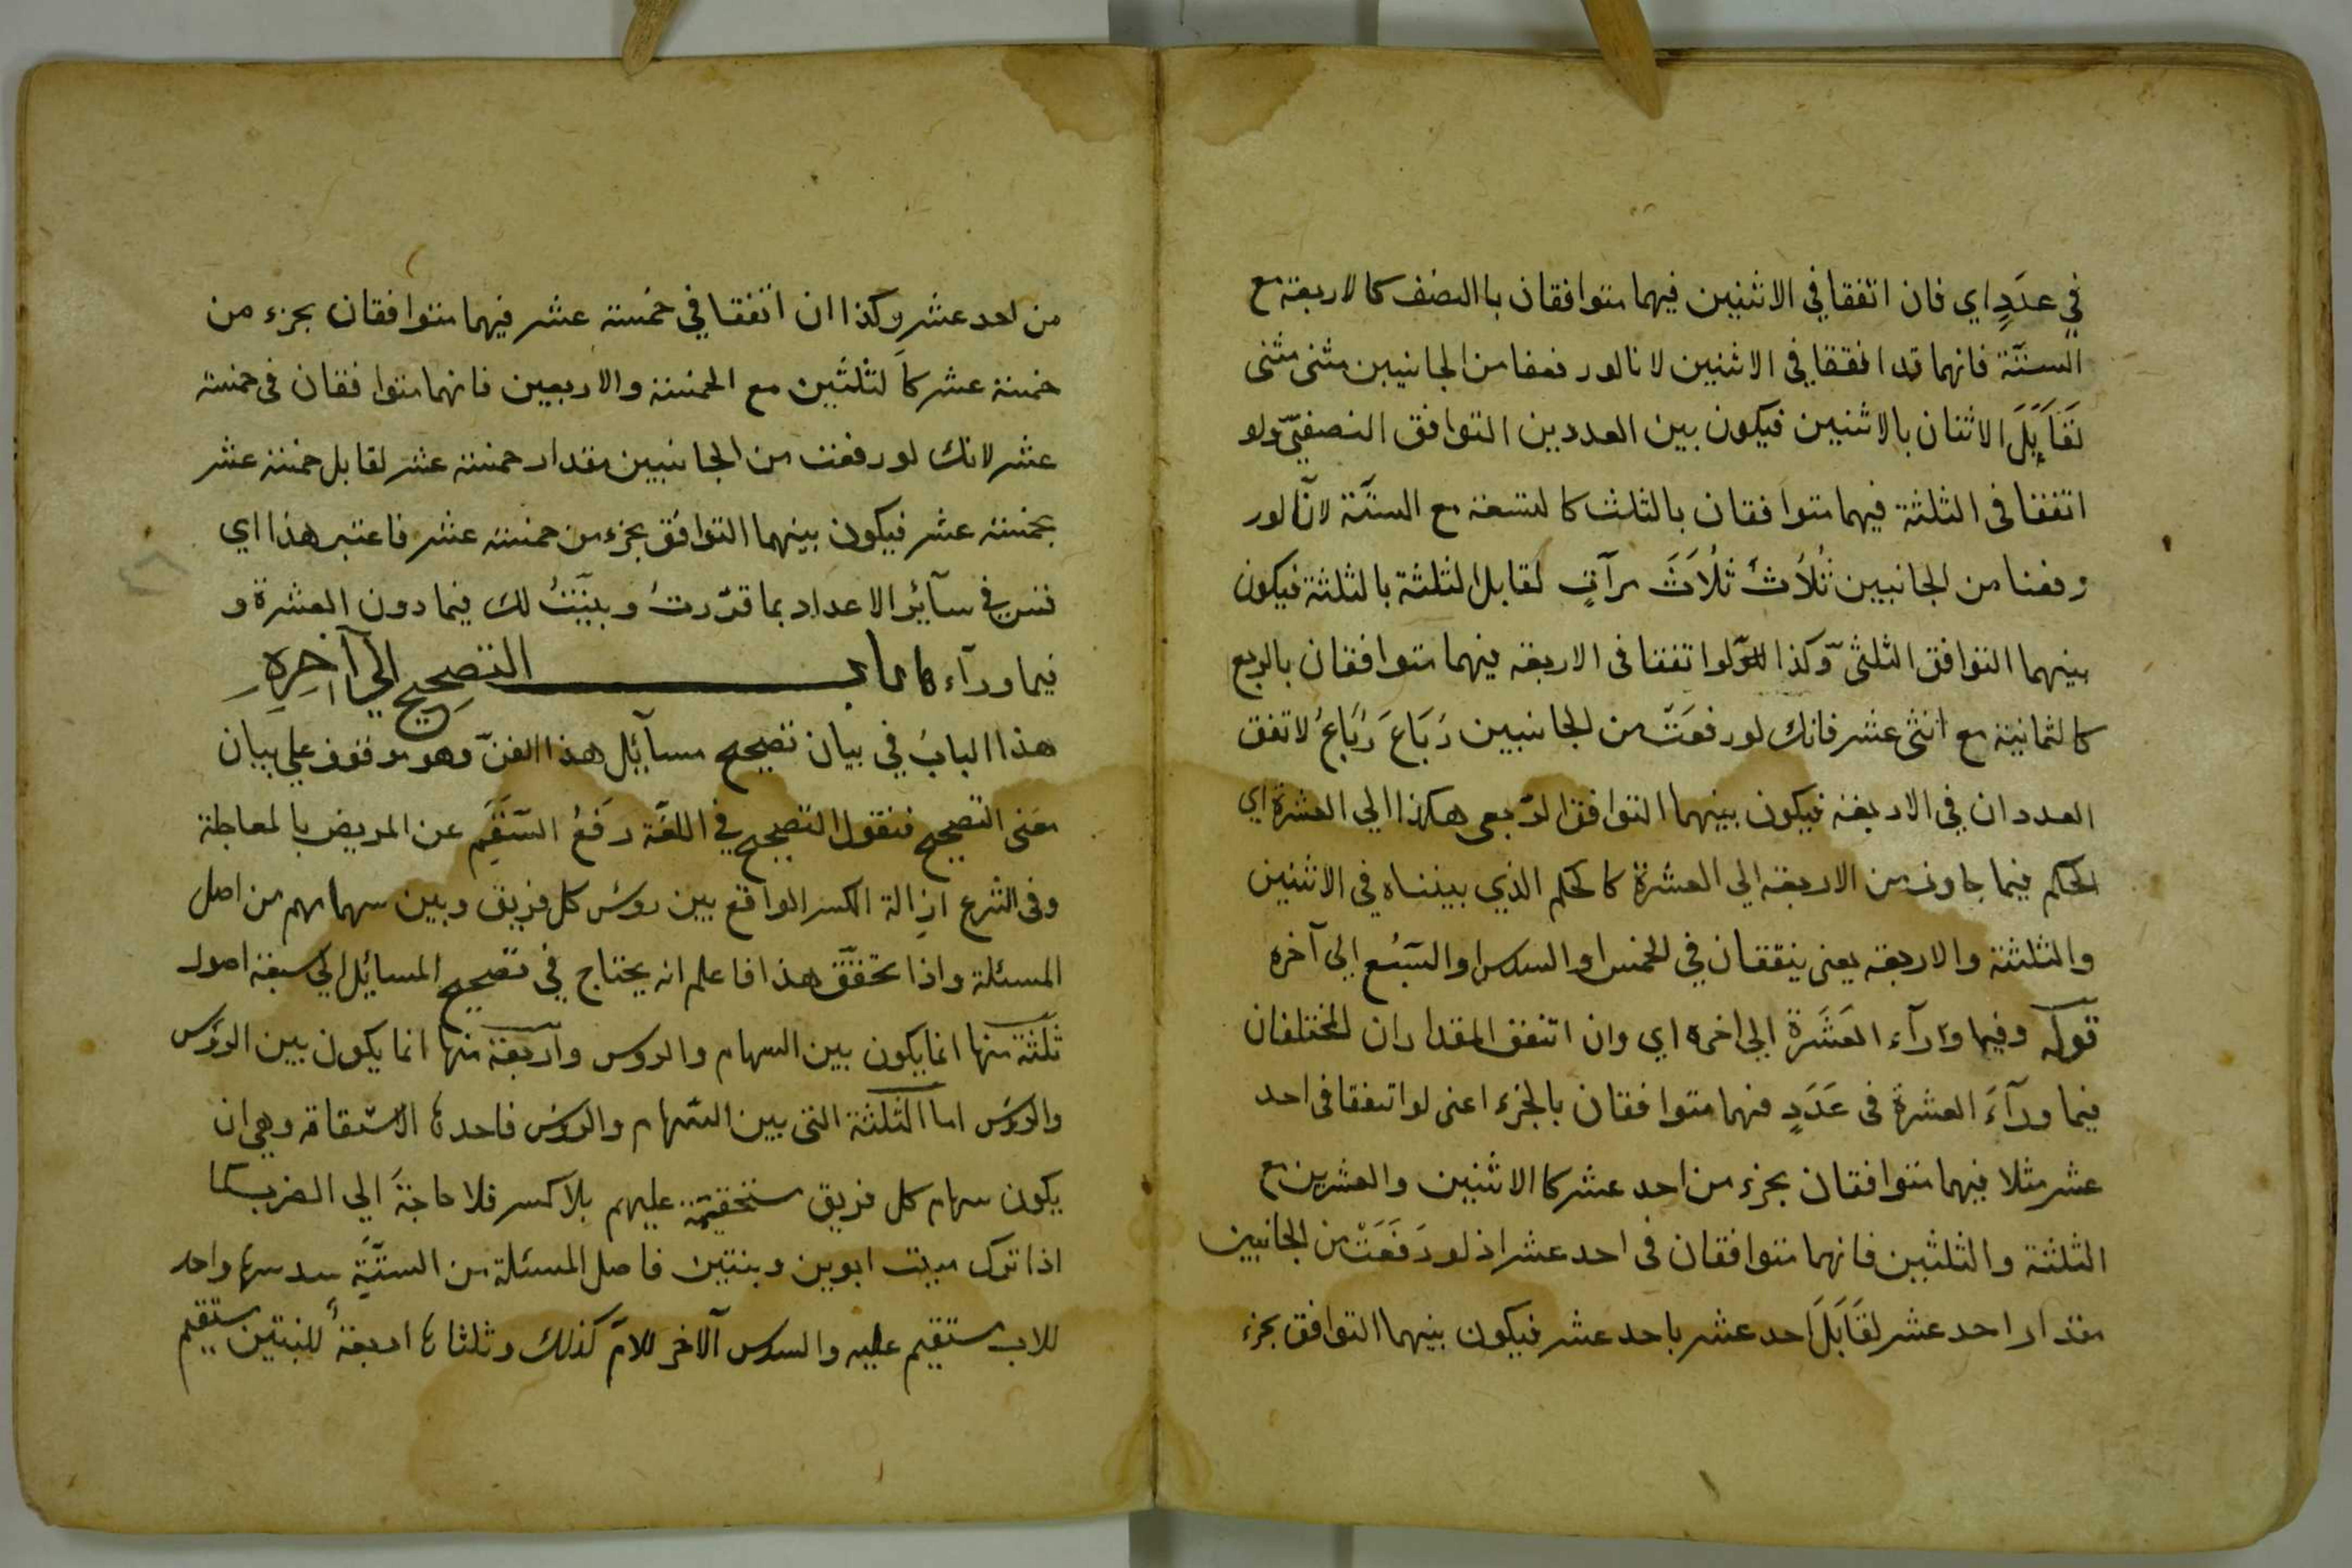 في عددٍ اي فان اتفقا في الاثنين فيهما متوافقان باالنصف كالاربعة مع
الستّة فانهما قد اتفقا في الاثنين لانا لو رفعنا من الجانبين مثنى مثنى
لقَابَلَ الاثنان بالاثنين فيكون بين العددين التوافق النصفيّ ولو
اتفقا في الثلثة فيهما متوافقان بالثلث كالتسعة مع الستّة لانّا لو ر
رفعنا من الجانبين ثُلاَثَ ثُلاَثَ مرآتٍ لقابل الثلثة بالثلثة فيكون
بينهما التوافق الثلثيّ وكذا لو اتفقا في الاربعة فيهما متوافقان بالربع
كالثمانية مع اثنى عشر فانك لو رفعَتَ من الجانبين رُبَاعَ رُبَاعُ لاتفق
العددان في الاربعة فيكون بينهما التوافق الرّبعى هكذا الي العشرة اي
الحكم فيما جاوز من الاربعة الي العشرة كالحكم الذي بيناه في الاثنين
والثلثة والاربعة يعنى يتفقان في الخمس او السدس او السّبُع الي آخره
قوله وفيما وَرآء العَشَرة الي اخره اي وان اتفق المقداران المختلفان
فيما ورآءَ العشرة فى عَدَدٍ فهما متوافقان بالجزء اعنى لو اتفقا فى احد
عشر مثلا فيهما متوافقان بجزء من احد عشر كاالاثنين والعشرين مع
الثلثة والثلثين فانهما متوافقان فى احد عشر اذ لو رَفَعَتْ من الجانبين
مقدار احد عشر لقَابَلَ احد عشر باحد عشر فيكون بينهما التوافق بجزء
من احد عشر وكذا ان اتفقا في خمسة عشر فيهما متوافقان بجزء من
خمسة عشر كالثلثين مع الخمسة والاربعين فانهما متوافقان في خمسة
عشر لانك لو رفعت من الجانبين مقدار خمسة عشر لقابل خمسة عشر
بخمسة عشر فيكون بينهما التوافق بجزء من خمسة عشر فاعتبر هذا اي
في سآئر الاعداد بما قرّرتُ وبيّنتُ لك فيما دون العشرة و
فيما ورآءها باب التصحِيح الي آخِرِهِ
هذا البابُ في بيان تصحيح مسآئل هذا الفنّ وهو موقوف علي بيان
معنى التصحيح فنقول التصحيح في اللغة رَفعُ السَّقَمِ عن المريض بالمعاجلة
وفى الشرع ازالة الكسر الواقع بين روس كل فريق وبين سهامهم من اصل
المسئلة واذا تحقّق هذا فاعلم انه يحتاج في تصحيح المسائل الي سبعة اصول
ثلثة منها انما يكون بين السهام والروس واربعة منها انما يكون بين الروس
والروس اما الثلثة التى بين السّهام والروس فاحدها الاستقامة وهي ان
يكون سهام كل فريق مستحقة عليهم بلا كسر فلا حاجةَ الي الضرب كما
اذا ترك ميت ابوين وبنتين فاصل المسئلة من الستّةِ سدسها واحد
للاب مستقيم عليه والسدس الآخر للامّ كذلك وثلثاها اربعةٌ للبنتين مستقيم
٤٦